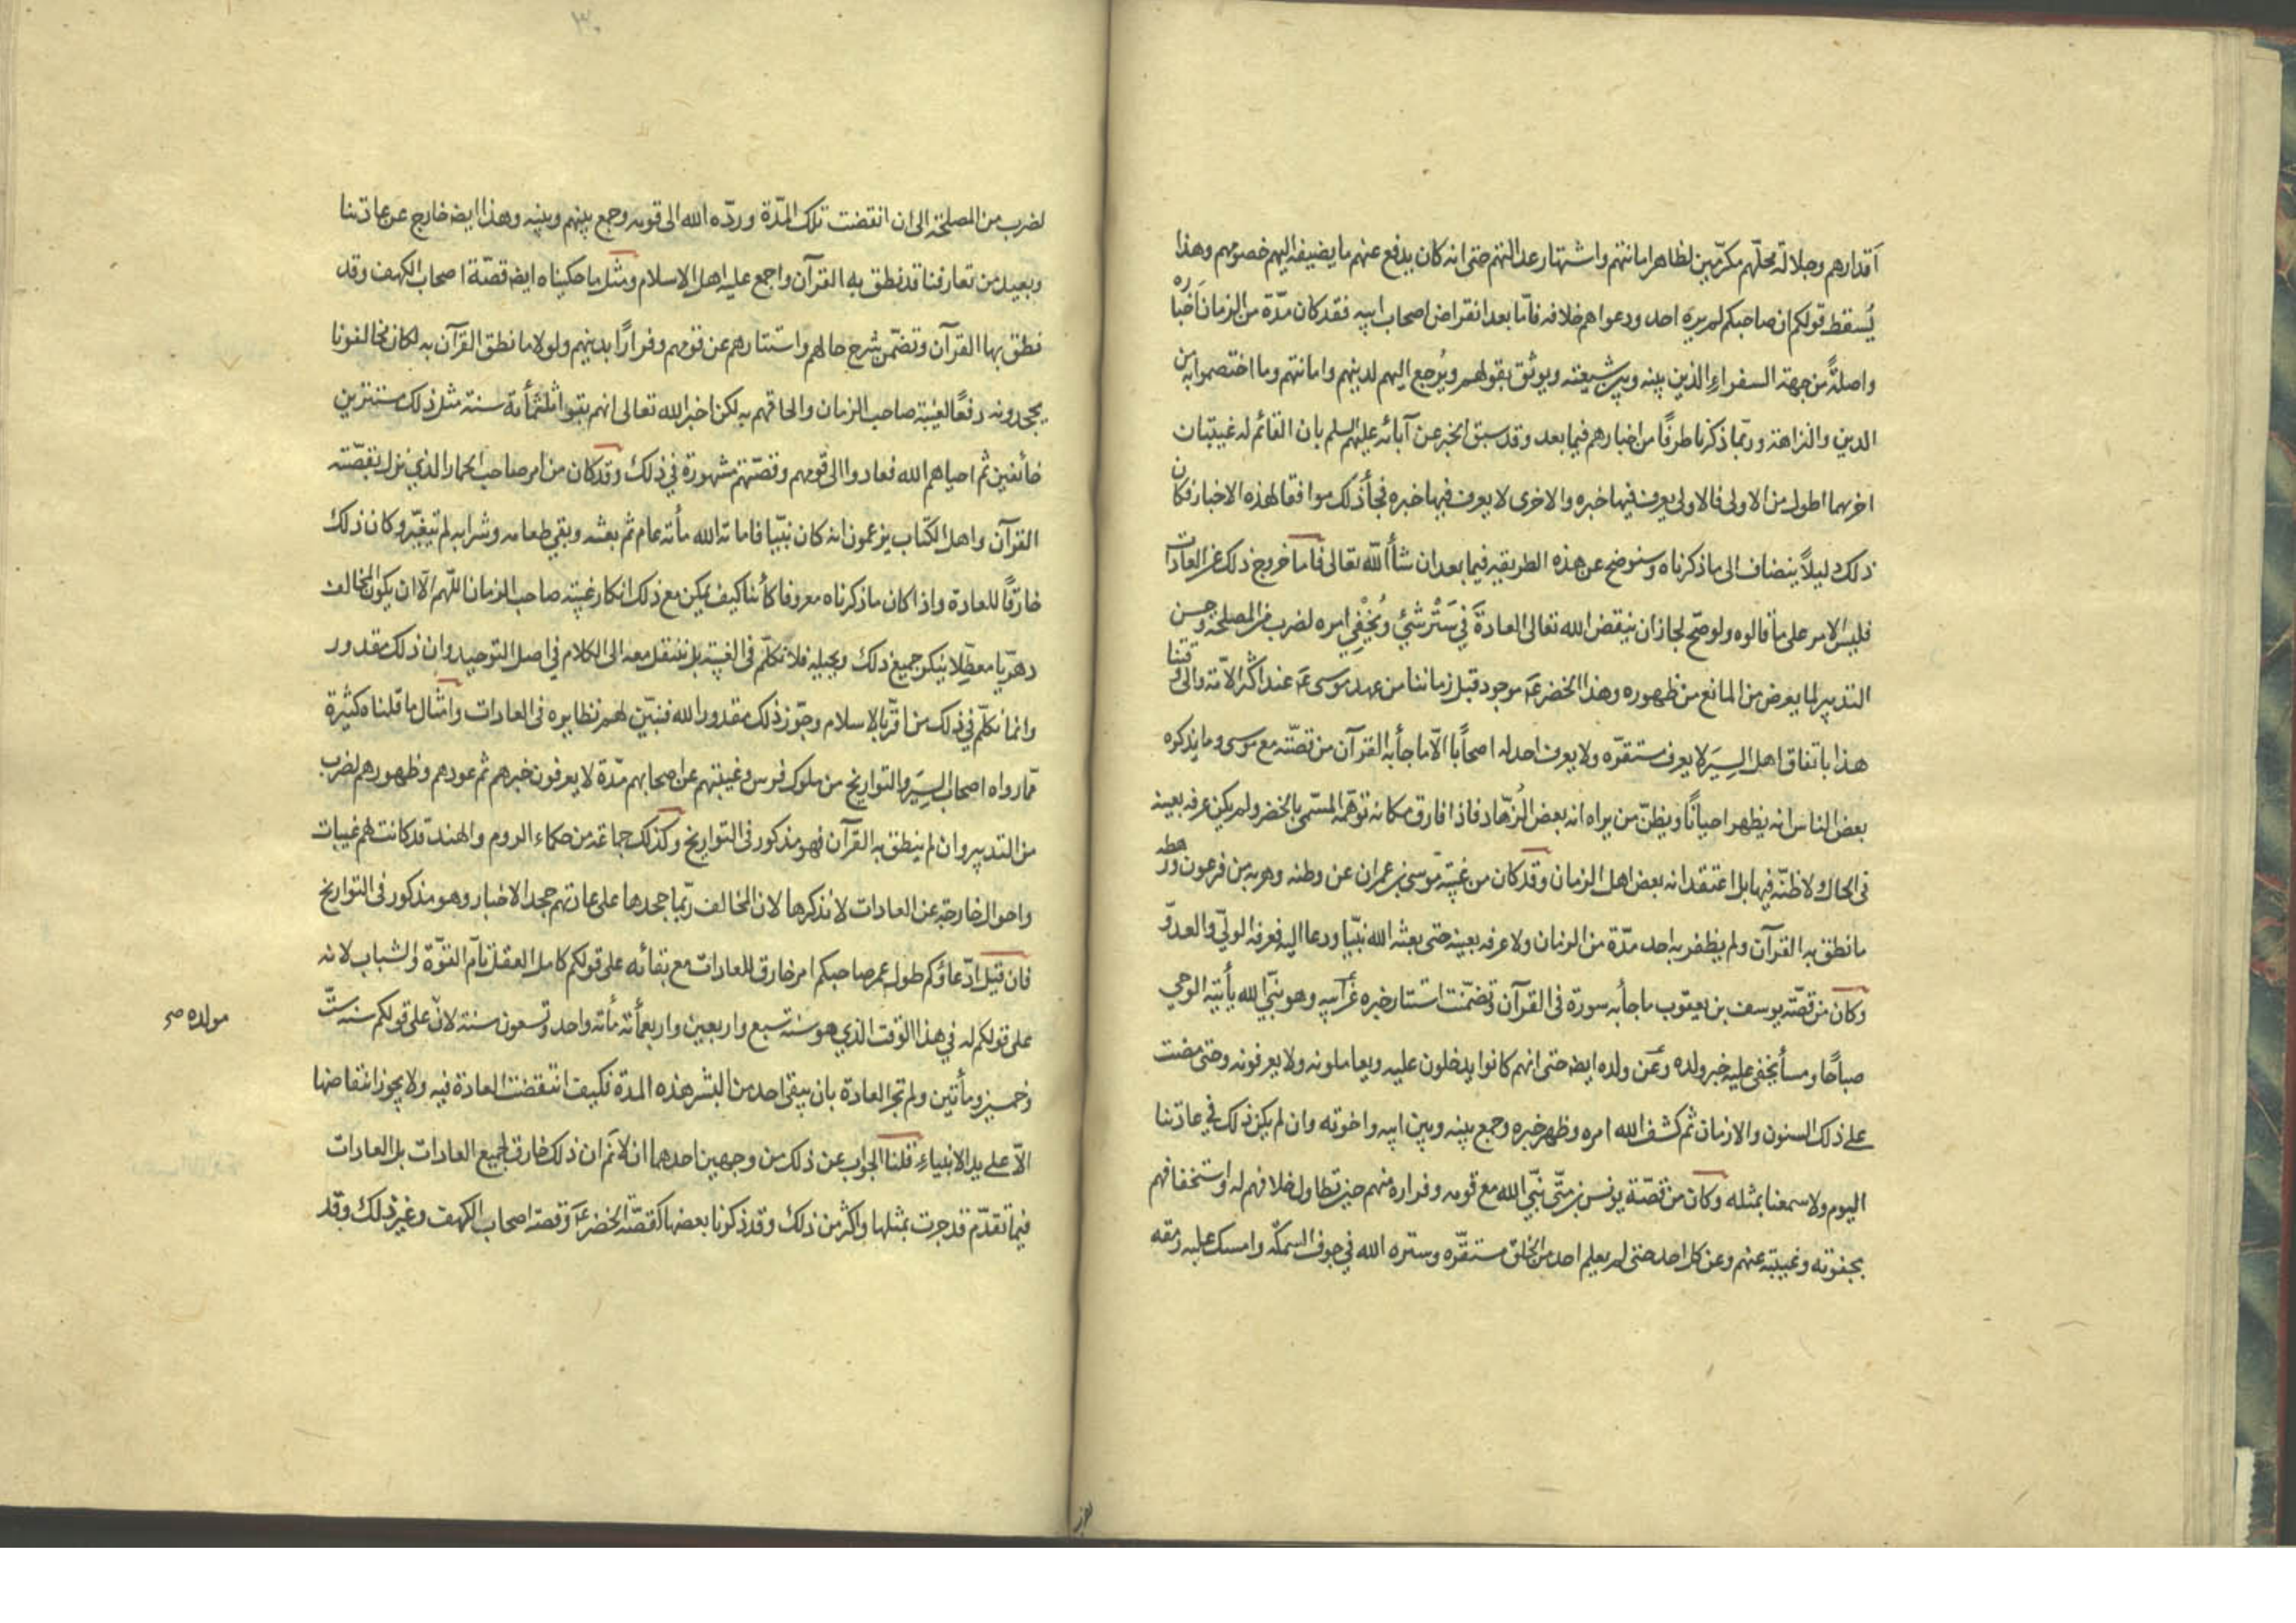 أقدارهم وجلالة محلّهم مكرّمين لظاهر امانتهم واشتهار عدالتهم حتى انه كان يدفع عنهم ما يضيفه اليهم خصومهم وهذا
يُسقط قولكم ان صاحبكم لم يره احد ودعواهم خلافه فامّا بعد انقراض اصحاب ابيه فقد كان مدّة من الزمان أخباره
واصلةً من جهة السفراء الذين بينه وبين شيعته ويوثق بقولهم ويُرجع اليهم لدينهم وامانتهم وما اختصموا به من
الدين والنزاهة وربّما ذكرنا طرفًا من اخبارهم فيما بعد وقد سبق الخبر عن آبائه عليهم السلم بان القائم له غيبتان
اخريهما اطول من الاولى فالاولى يعرف فيها خبره والاخرى لا يعرف فيها خبره فجاء ذلك موافقا لهذه الاخبار فكان
ذلك دليلاً ينضاف الى ما ذكرناه وسنوضح عن هذه الطريقه فيما بعد ان شاء الله تعالى فاما خروج ذلك عن العادات
فليس الامر على ما قالوه ولو صحّ لجاز ان ينقض الله تعالى العادة في سَتْر شئي ويُخْفي امره لضرب من المصلحة وحسن
التدبير لما يعرض من المانع من ظهوره وهذا الخضر ع موجود قبل زماننا من عهد موسى ع عند اكثر الامّة والى وقتنا
هذا باتفاق اهل السِيَر لا يعرف مستقرّه ولا يعرف احد له اصحابا الّا ما جاء به القرآن من قصّته مع موسى وما يذكره
بعض الناس انه يظهر احيانًا ويظنّ من يراه انه بعض الزُهّاد فاذا فارق مكانه توهّمه المسمّى بالخضر ولم يكن عرفه بعينه
في الحال ولا ظنّه فيها بل اعتقد انه بعض اهل الزمان وقد كان من غيبة موسى بن عمران عن وطنه وهربه من فرعون ورهطه
ما نطق به القرآن ولم يظفر به احد مدّة من الزمان ولا عرفه بعينه حتى بعثه الله نبيّا ودعا اليه فعرفه الوليّ والعدوّ
وكان من قصّة يوسف بن يعقوب ما جاء به سورة في القرآن وتضمّنت استتار خبره عن أبيه وهو نبيّ الله يأتيه الوحي
صباحًا ومساءً يخفى عليه خبر ولده وعن ولده ايض حتى انهم كانوا يدخلون عليه ويعاملونه ولا يعرفونه وحتى مضت
على ذلك السنون والازمان ثم كشف الله امره وظهر خبره وجمع بينه وبين ابيه واخوته وان لم يكن ذلك في عادتنا
اليوم ولا سمعنا بمثله وكان من قصّة يونس بن متّى نبيّ الله مع قومه وفراره منهم حين تطاول خلافهم له واستخفافهم
بجفوته وغيبته عنهم وعن كل احد حتى لم يعلم احد من الخلق مستقرّه وستره الله في جوف السمكة وامسك عليه رمقه
لضرب
لضرب من المصلحة الى ان انقضت تلك المدّة وردّه الله الى قومه وجمع بينهم وبينه وهذا ايض خارج عن عادتنا
وبعيد من تعارفنا قد نطق به القرآن واجمع عليه اهل الاسلام ومثل ما حكيناه ايض قصّة اصحاب الكهف وقد
نطق بها القرآن وتضمّن شرح حالهم واستتارهم عن قومهم وفرارًا بدينهم ولولا ما نطق القرآن به لكان مخالفونا
يجحدونه دفعًا لغيبة صاحب الزمان والحاقهم به لكن اخبر الله تعالى انهم بقوا ثلثمأئة سنة مثل ذلك مستترين
خائفين ثم احياهم الله فعادوا الى قومهم وقصّتهم مشهورة في ذلك وقد كان من امر صاحب الحمار الذي نزل بقصّته
القرآن واهل الكتاب يزعمون انه كان نبيّا فاماته الله مأئة عام ثم بعثه وبقي طعامه وشرابه لم يتغيّر وكان ذلك
خارقًا للعادة واذا كان ما ذكرناه معروفا كائنا كيف يمكن مع ذلك انكار غيبة صاحب الزمان اللهم الّا ان يكون المخالف
دهريّا معطّلا ينكر جميع ذلك ويحيله فلا نكلّم في الغيبة بل ننتقل معه الى الكلام في اصل التوحيد وان ذلك مقدور
وانما نكلّم في ذلك من اقرّ بالاسلام وجوّز ذلك مقدورا لله فنبيّن لهم نظايره في العادات وامثال ما قلناه كثيرة
ممّا رواه اصحاب السِيَر والتواريخ من ملوك فرس وغيبتهم عن اصحابهم مدّة لا يعرفون خبرهم ثم عودهم وظهورهم لضرب
من التدبير وان لم ينطق به القرآن فهو مذكور في التواريخ وكذلك جماعة من حكماء الروم والهند قد كانت لهم غيبات
واحوال خارجة عن العادات لا نذكرها لان المخالف ربّما جحدها على عادتهم جحد الاخبار وهو مذكور في التواريخ
فان قيل ادّعاؤكم طول عمر صاحبكم امر خارق للعادات مع بقائه على قولكم كامل العقل تامّ القوّة والشباب لانه
على قولكم له في هذا الوقت الذي هو سنة سبع واربعين واربعمأئة مأئة واحد وتسعون سنة لانّ على قولكم سنة ستّ
مولده صح
وخمسين ومأتين ولم تجر العادة بان يبقى احد من البشر هذه المدة فكيف انتقضت العادة فيه ولا يجوز انتقاضها
الّا على يد الانبياء قلنا الجواب عن ذلك من وجهين احدهما ان لا نَم ان ذلك خارق لجميع العادات بل العادات
فيما تقدّم قد جرت بمثلها واكثر من ذلك وقد ذكرنا بعضها كقصّة الخضر ع وقصة اصحاب الكهف وغير ذلك وقد